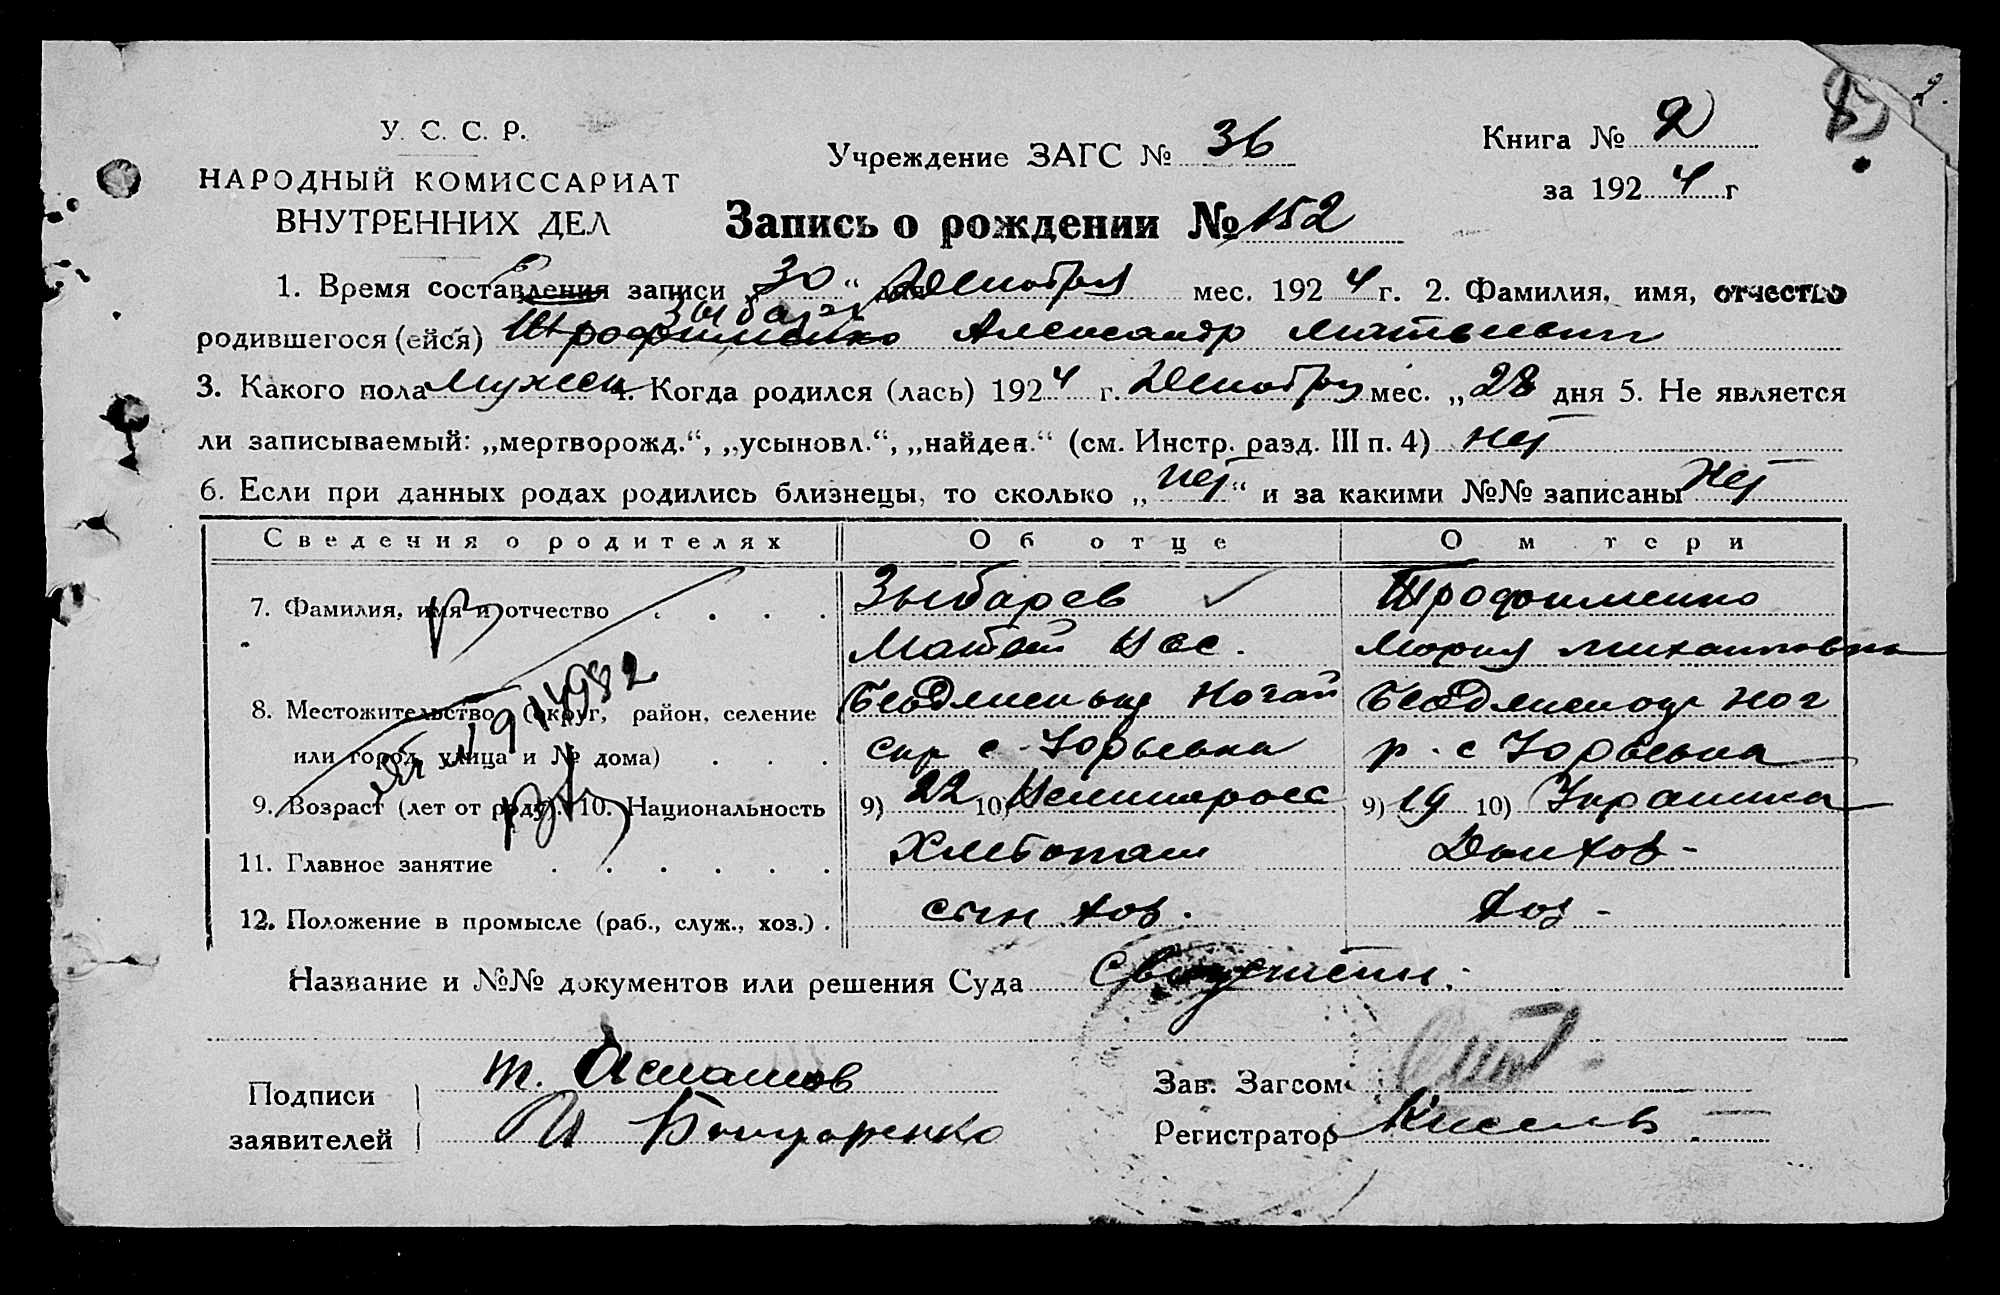 У. С. С. Р.
НАРОДНЫЙ КОМИССАРИАТ
ВНУТРЕННИХ ДЕЛ
Учреждение ЗАГС № 36
Книга № 2
за 1924 г
2.
Запись о рождении № 152
1. Время составления записи „30“ дня мес. 1924 г. 2. Фамилия, имя, отчество
родившегося (ейся) Трофименко Александр Матвеевич
3. Какого пола Мужск 4. Когда родился (лась) 1924 г. мес. „28 дня 5. Не является
ли записываемый: „мертворожд.“, „усыновл.“, „найден.“ (см. Инстр. разд. III п. 4) нет
6. Если при данных родах родились близнецы, то сколько „нет“ и за какими №№ записаны нет
Сведения о родителях Об отце О матери
7. Фамилия, имя и отчество . . . . Зыбарев Трофименко
Матвей Мария Михайловна
8. Местожительство (округ, район, селение
или город, улица и № дома) . . . с Юрьевка р. с Юрьевка
9. Возраст (лет от роду). 10. Национальность 9) 22 10) 9) 19 10) Украинка
11. Главное занятие . . . . . . Хлебопаш Домхоз-
12. Положение в промысле (раб., служ., хоз.) . сын хоз. хоз-
Название и №№ документов или решения Суда
Подписи
заявителей
т. Асманов
И Бондаренко
Зав. Загсом
Регистратор Кисель